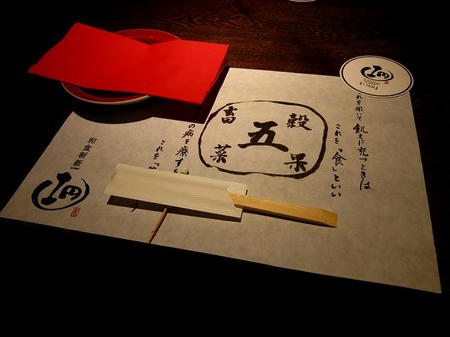 れを用いて飢えに充つときは
これを「食」といい
穀
果
五
畜
菜
の病を療す
これを「